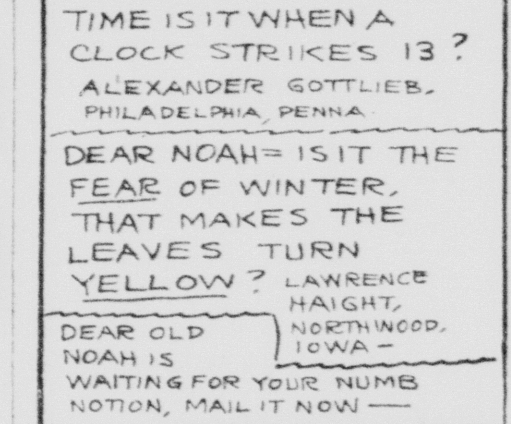 TIME IS IT WHEN A
CLOCK STRIKES 13?
ALEXANDER GOTTLIEB,
PHILADELPHIA, PENNA.
DEAR NOAH= IS IT THE
FEAR OF WINTER,
THAT MAKES THE
LEAVES TURN
YELLOW? LAWRENCE
HAIGHT,
NORTHWOOD,
IOWA—
DEAR OLD
NOAH IS
WAITING FOR YOUR NUMB
NOTION, MAIL IT NOW—